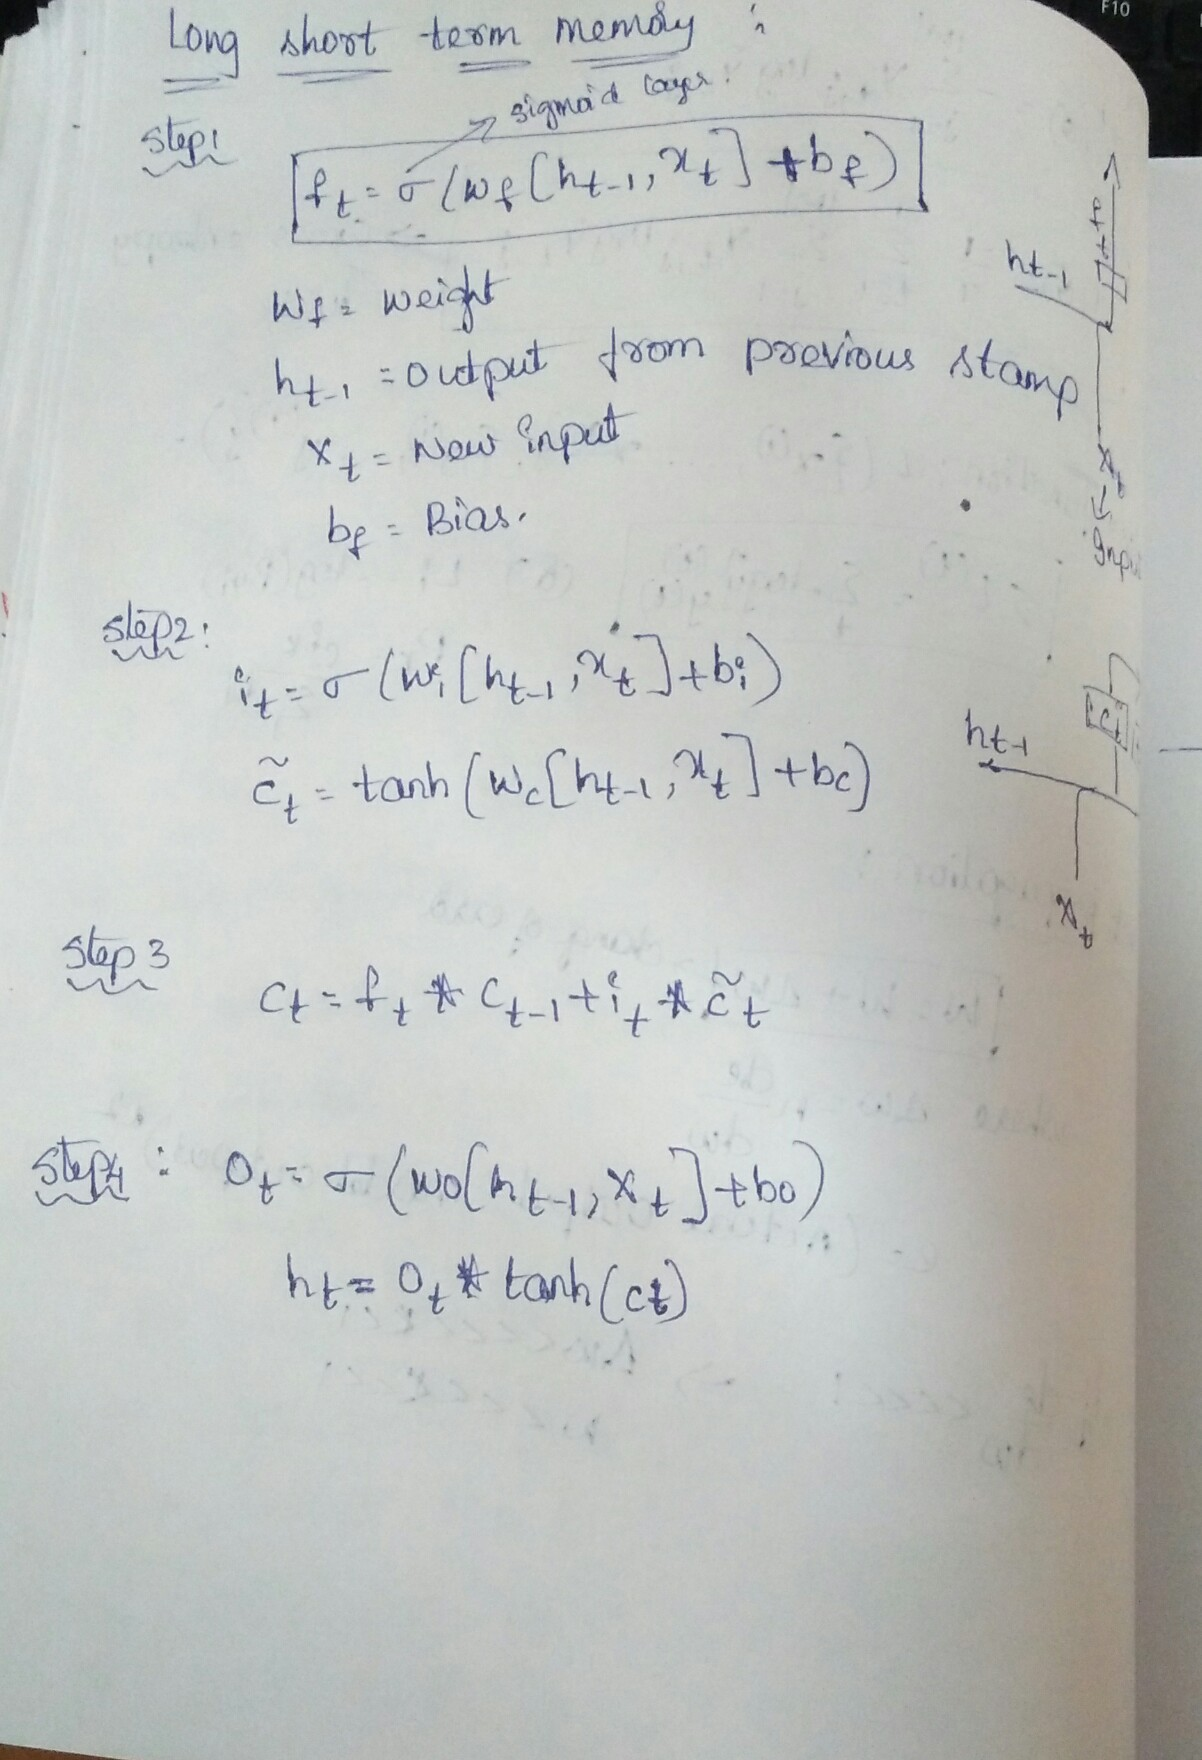 Long short term memory :
sigmoid layer.
step1
f_t = σ(W_f[h_{t-1}, x_t] + b_f)
W_f = weight
h_{t-1} = output from previous stamp
x_t = New input
b_f = Bias.
h_{t-1}
x_t
step2:
i_t = σ(W_i[h_{t-1}, x_t] + b_i)
c̃_t = tanh(W_c[h_{t-1}, x_t] + b_c)
h_{t-1}
x_t
step 3
c_t = f_t * c_{t-1} + i_t * c̃_t
step4 : o_t = σ(W_o[h_{t-1}, x_t] + b_o)
h_t = o_t * tanh(c_t)
F10